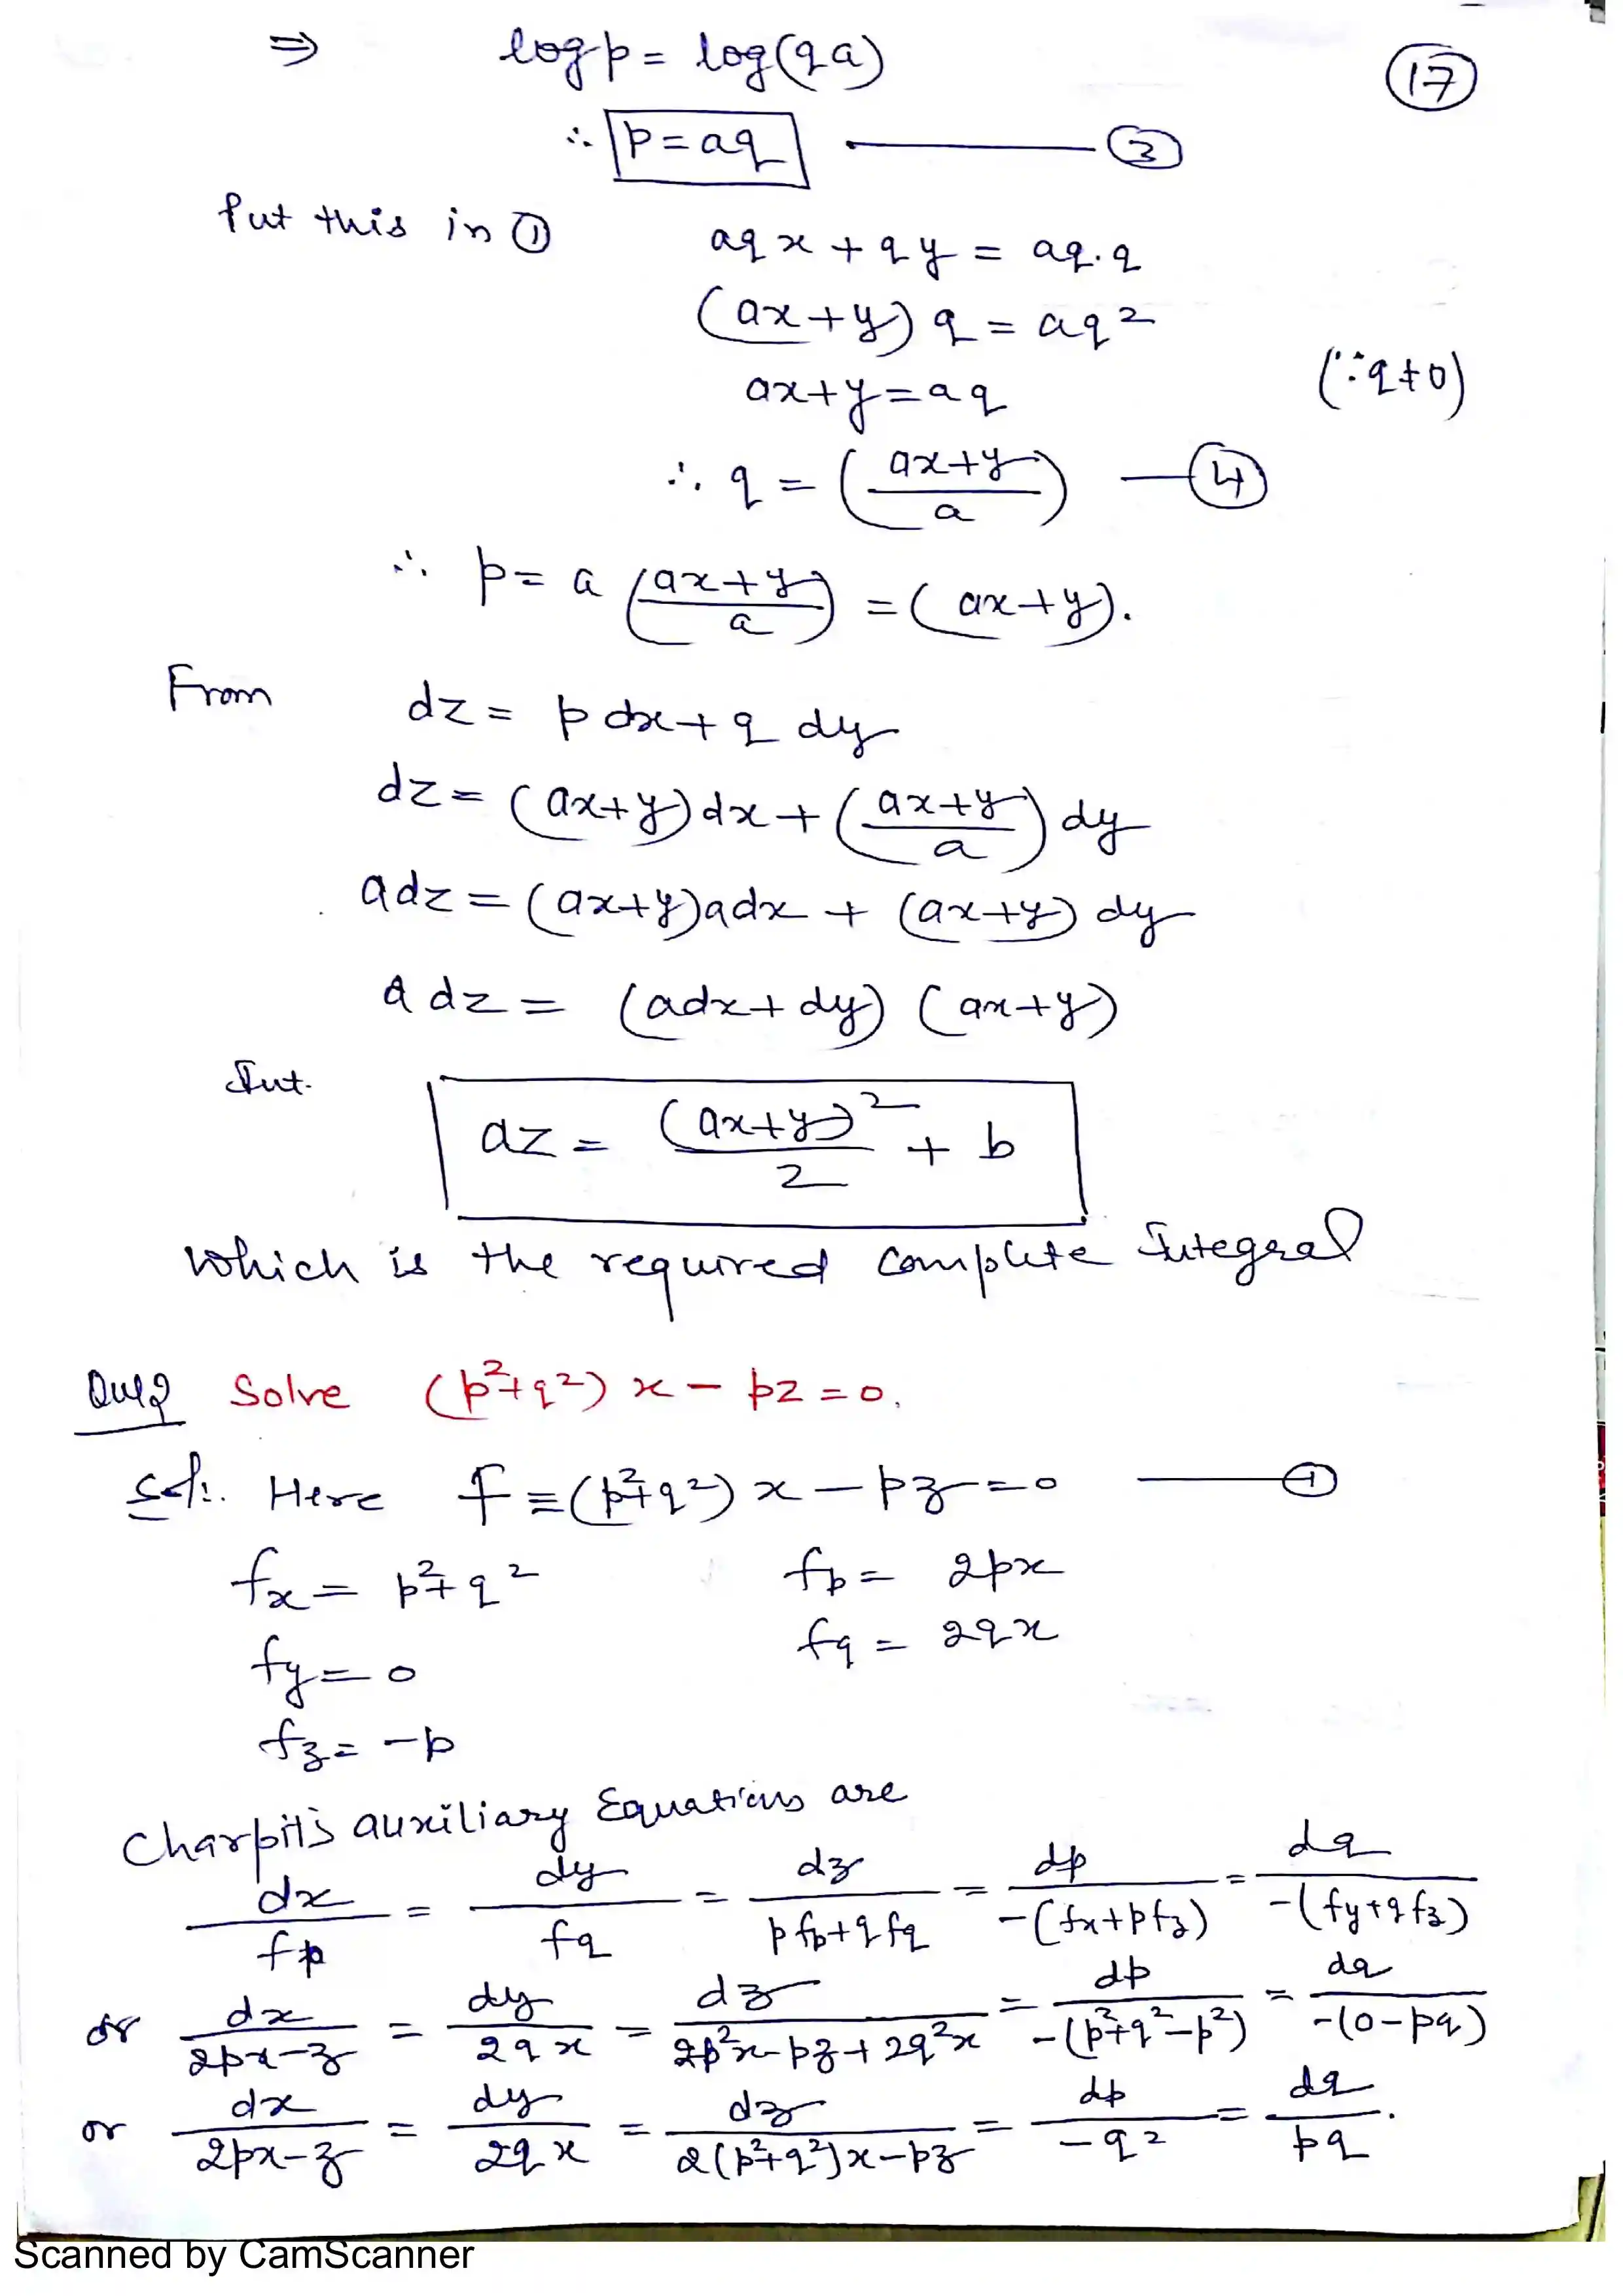 ⇒ log p = log(qa) (17)
∴ p = aq ——— (3)
Put this in (1) aqx + qy = aq.q
(ax+y) q = aq²
ax+y = aq (∵ q≠0)
∴ q = ((ax+y)/a) — (4)
∴ p = a ((ax+y)/a) = (ax+y).
From dz = p dx + q dy
dz = (ax+y)dx + ((ax+y)/a) dy
adz = (ax+y)adx + (ax+y) dy
a dz = (adx + dy) (ax+y)
Int. az = (ax+y)²/2 + b
Which is the required complete Integral
Que2 Solve (p²+q²) x − pz = 0.
Sol:. Here f ≡ (p²+q²) x − pz = 0 ——— (1)
fx = p²+q² fp = 2px
fy = 0 fq = 2qx
fz = −p
Charpit's auxiliary Equations are
dx/fp = dy/fq = dz/(p fp + q fq) = dp/−(fx+pfz) = dq/−(fy+qfz)
or dx/(2px−z) = dy/(2qx) = dz/(2p²x−pz+2q²x) = dp/−(p²+q²−p²) = dq/−(0−pq)
or dx/(2px−z) = dy/(2qx) = dz/(2(p²+q²)x−pz) = dp/(−q²) = dq/(pq).
Scanned by CamScanner